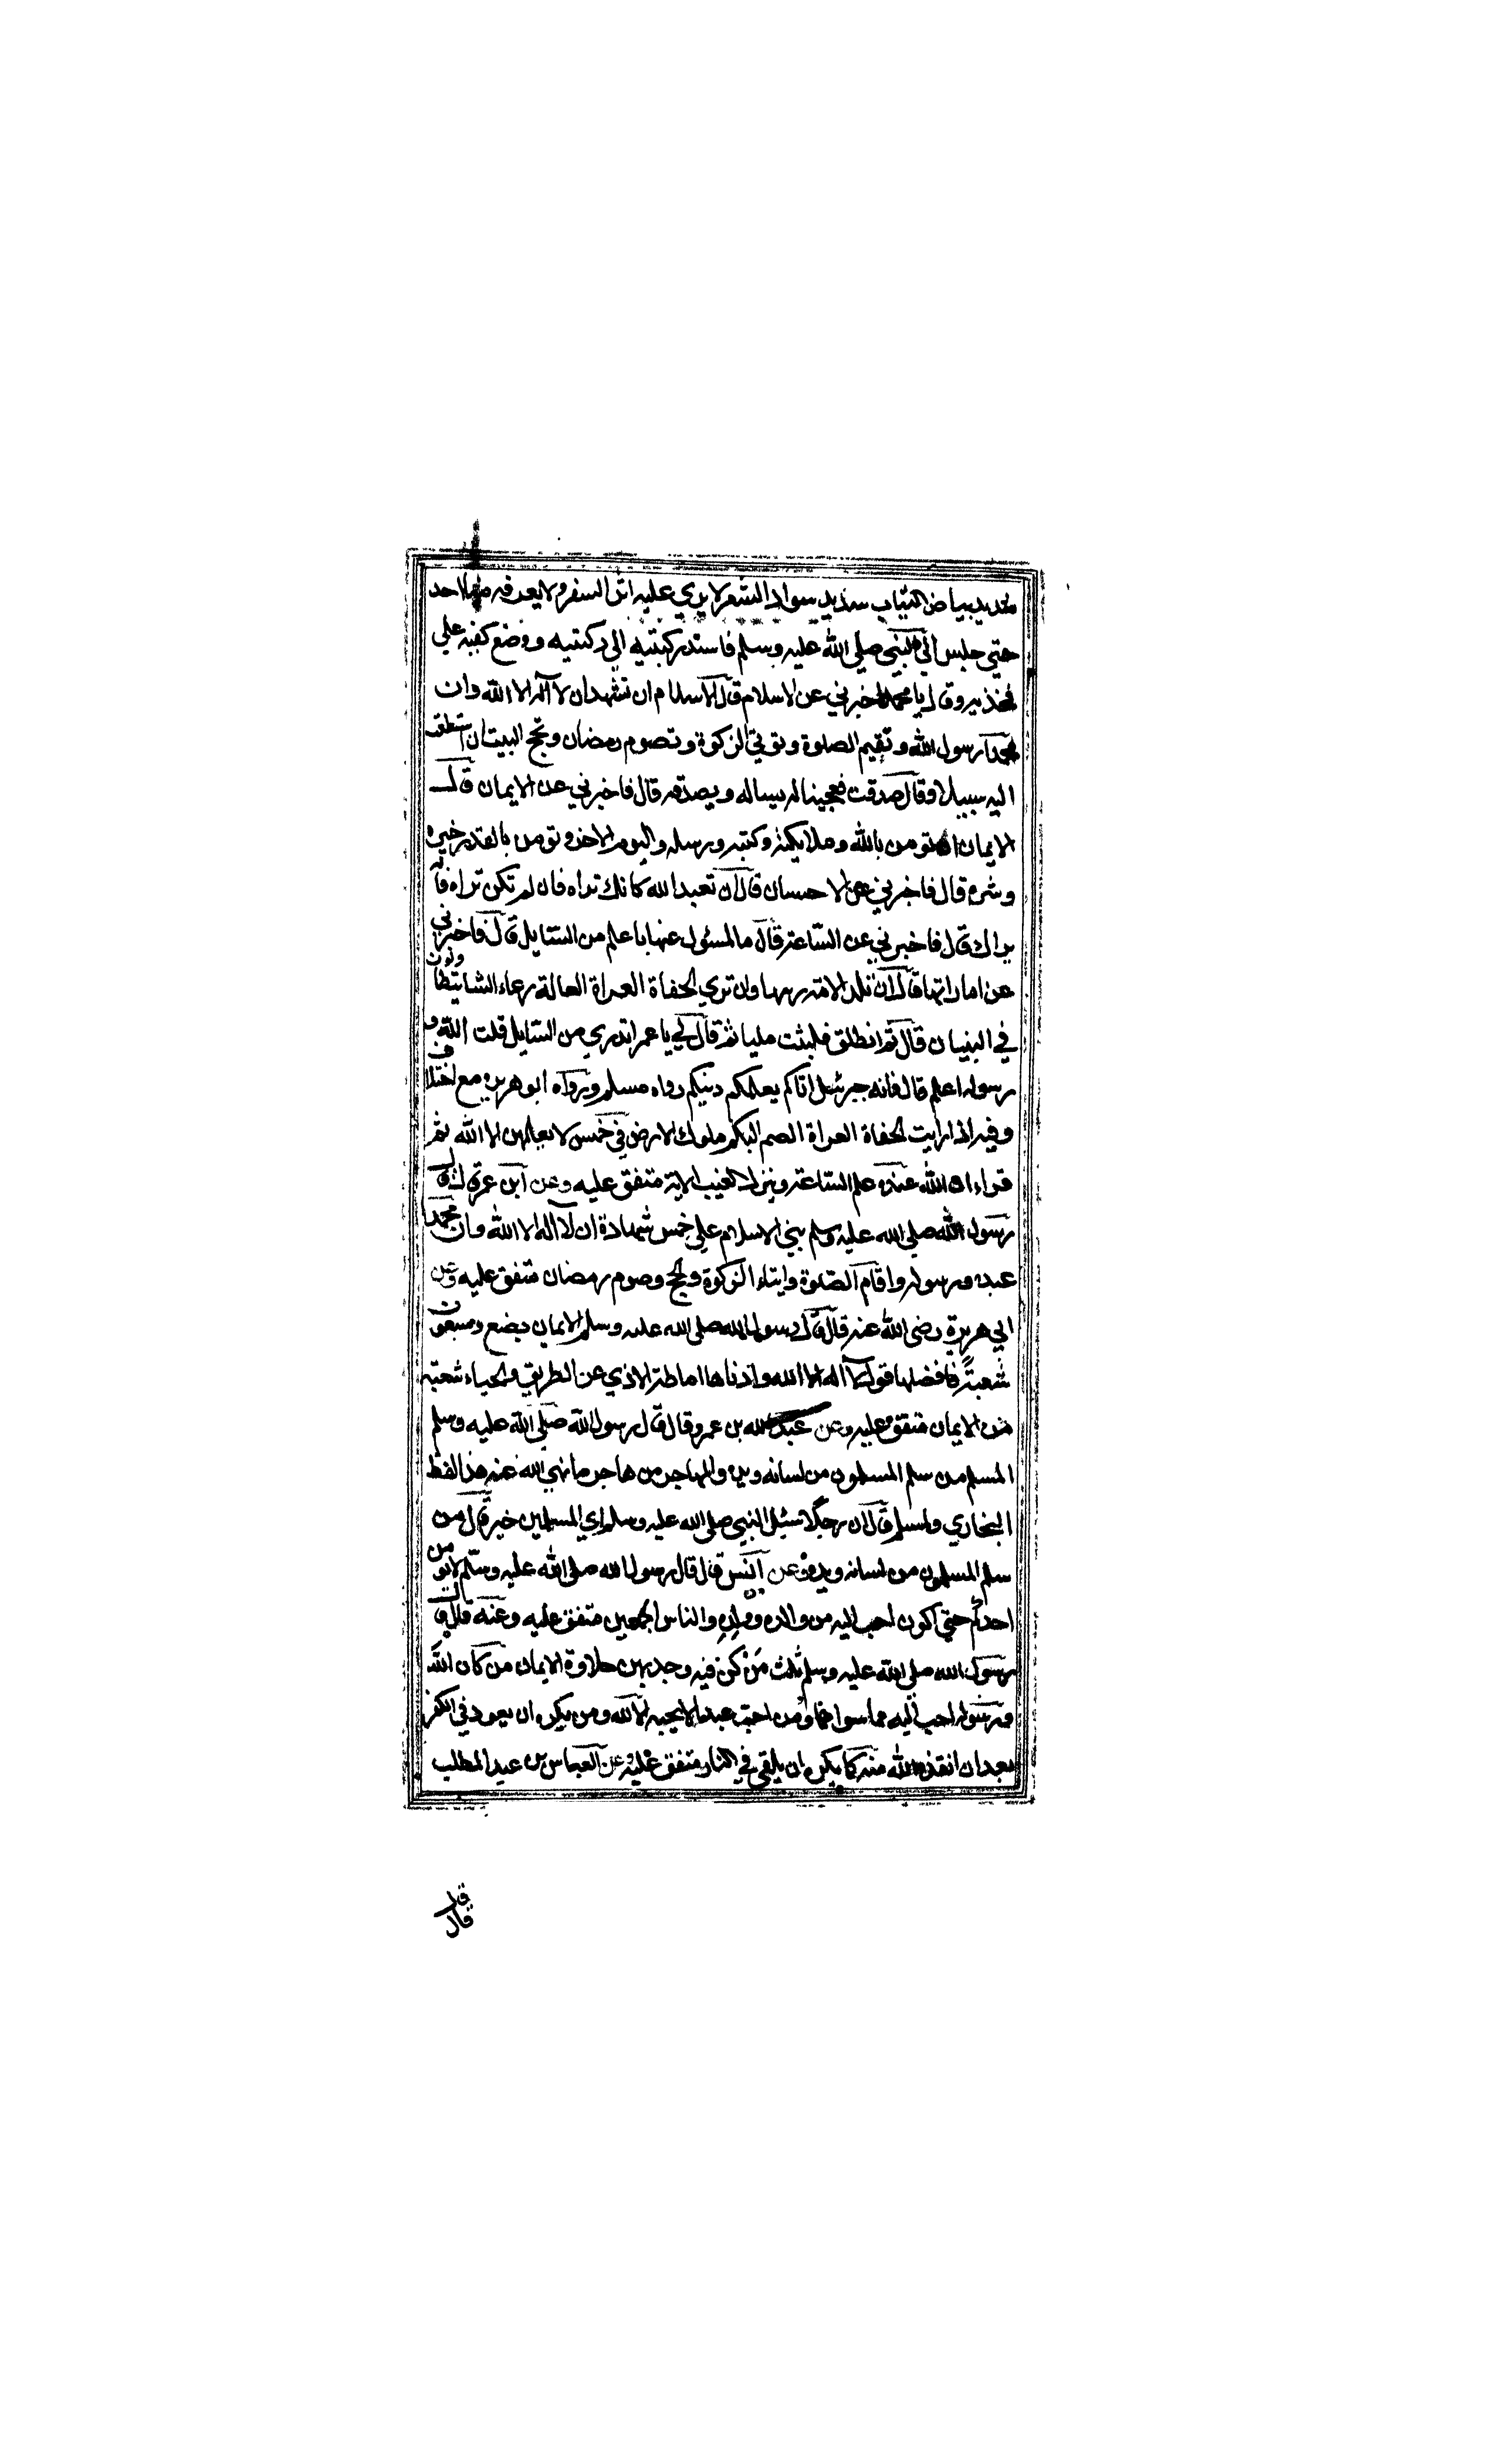 شديد بياض الثياب شديد سواد الشعر لا يري عليه اثر السفر ولا يعرفه منا احد
حتي جلس الي النبي صلي الله عليه وسلم فاسند ركبتيه الي ركبتيه ووضع كفيه علي
فخذيه وقال يا محمد اخبرني عن الاسلام قال الاسلام ان تشهد ان لا اله الا الله وان
محمدا رسول الله وتقيم الصلوة وتوتي الزكوة وتصوم رمضان وتحج البيت ان استطعت
اليه سبيلا وقال صدقت فعجبنا له يساله ويصدقه قال فاخبرني عن الايمان قال
الايمان ان تومن بالله وملايكته وكتبه ورسله واليوم الاخر وتومن بالقدر خيره
وشره قال فاخبرني عن الاحسان قال ان تعبد الله كانك تراه فان لم تكن تراه فانه
يراك قال فاخبرني عن الساعة قال ما المسئول عنها باعلم من السايل قال فاخبرني
عن اماراتها قال ان تلد الامة ربها وان تري الحفاة العراة العالة رعاء الشاء يتطاولون
في البنيان قال ثم انطلق فلبثت مليا ثم قال لي يا عمر اتدري من السايل قلت الله و
رسوله اعلم قال فانه جبرئيل اتاكم يعلمكم دينكم رواه مسلم ورواه ابو هريره مع اختلاف
وفيه اذا رايت الحفاة العراة الصم البكم ملوك الارض في خمس لا يعلمهن الا الله ثم
قراء ان الله عنده علم الساعة وينزل الغيب الاية متفق عليه وعن ابن عمر قال قال
رسول الله صلي الله عليه وسلم بني الاسلام علي خمس شهادة ان لا اله الا الله وان محمدا
عبده ورسوله واقام الصلوة وايتاء الزكوة والحج وصوم رمضان متفق عليه وعن
ابي هريرة رضي الله عنه قال قال رسول الله صلي الله عليه وسلم الايمان بضع وسبعون
شعبة فافضلها قول لا اله الا الله وادناها اماطة الاذي عن الطريق والحياء شعبة
من الايمان متفق عليه وعن عبد الله بن عمرو قال قال رسول الله صلي الله عليه وسلم
المسلم من سلم المسلمون من لسانه ويده والمهاجر من هاجر ما نهي الله عنه هذا لفظ
البخاري ولمسلم قال ان رجلا سئل النبي صلي الله عليه وسلم اي المسلمين خير قال من
سلم المسلمون من لسانه ويده وعن انس قال قال رسول الله صلي الله عليه وسلم لا يومن
احدكم حتي اكون احب اليه من والده وولده والناس اجمعين متفق عليه وعنه قال قال
رسول الله صلي الله عليه وسلم ثلث من كن فيه وجد بهن حلاوة الايمان من كان الله
ورسوله احب اليه مما سواهما ومن احب عبدا لا يحبه الا لله ومن يكره ان يعود في الكفر
بعد ان انقذه الله منه كما يكره ان يلقي في النار متفق عليه وعن العباس بن عبد المطلب
قال
قال